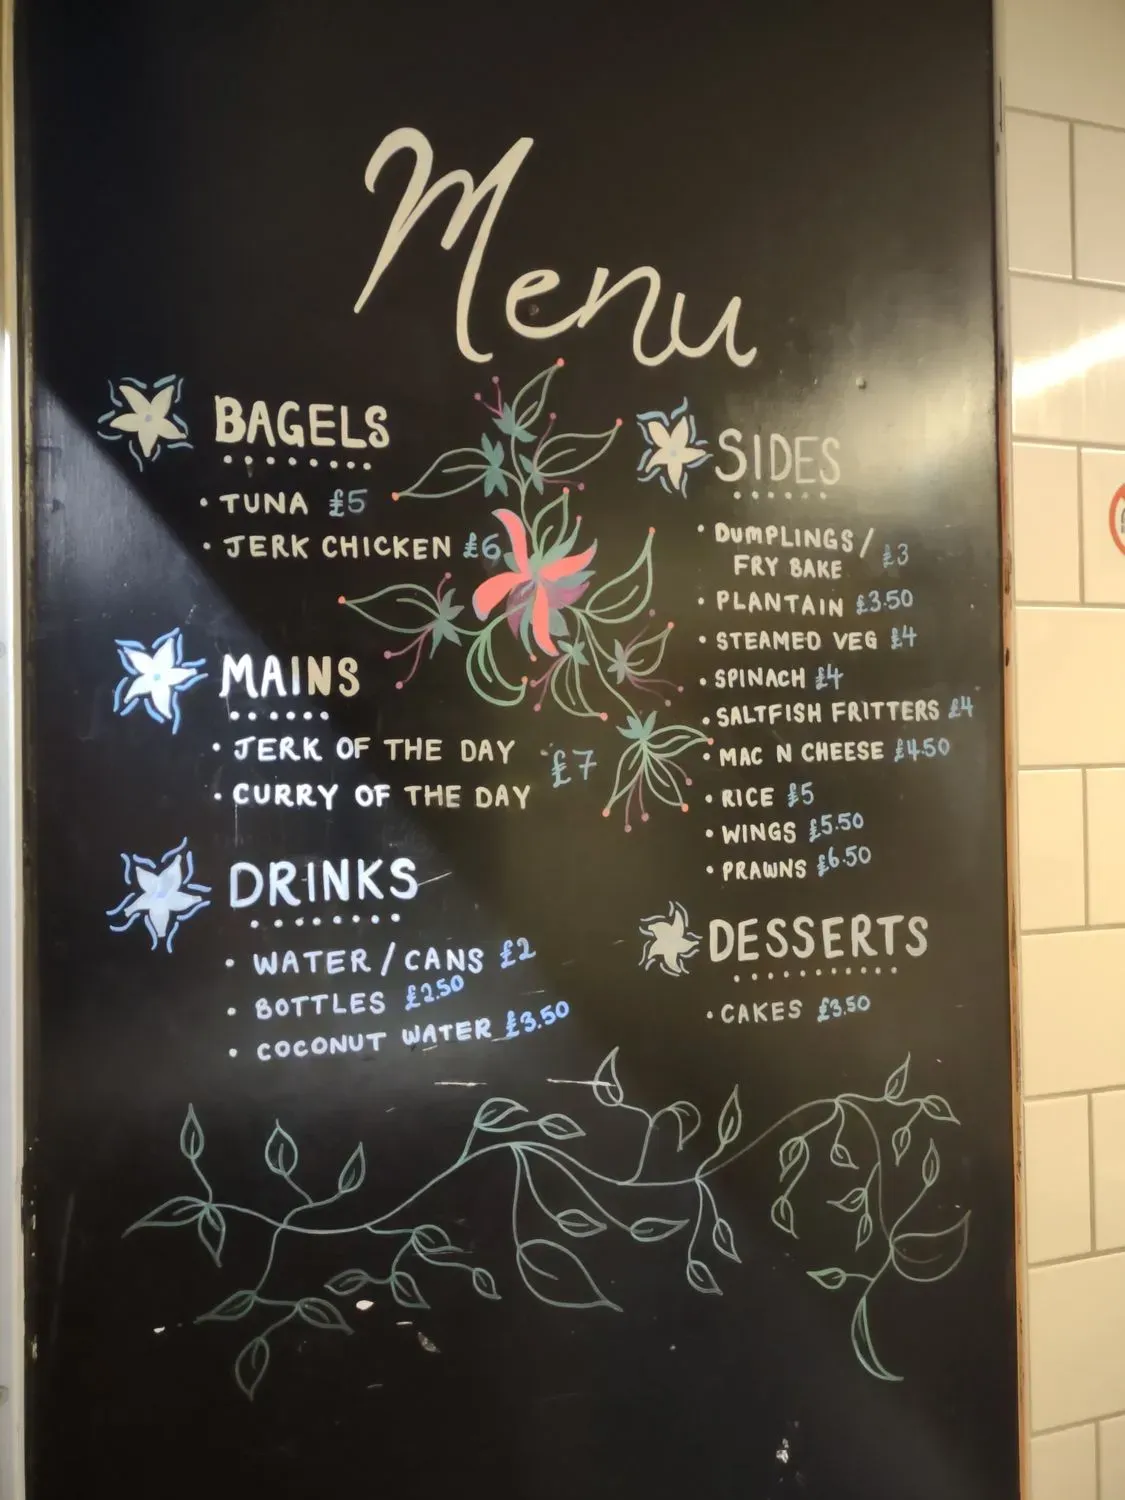 Menu
BAGELS
• TUNA £5
• JERK CHICKEN £6
MAINS
• JERK OF THE DAY
• CURRY OF THE DAY
£7
DRINKS
• WATER/CANS £2
• BOTTLES £2.50
• COCONUT WATER £3.50
SIDES
• DUMPLINGS/
FRY BAKE £3
• PLANTAIN £3.50
• STEAMED VEG £4
• SPINACH £4
• SALTFISH FRITTERS £4
• MAC N CHEESE £4.50
• RICE £5
• WINGS £5.50
• PRAWNS £6.50
DESSERTS
• CAKES £3.50